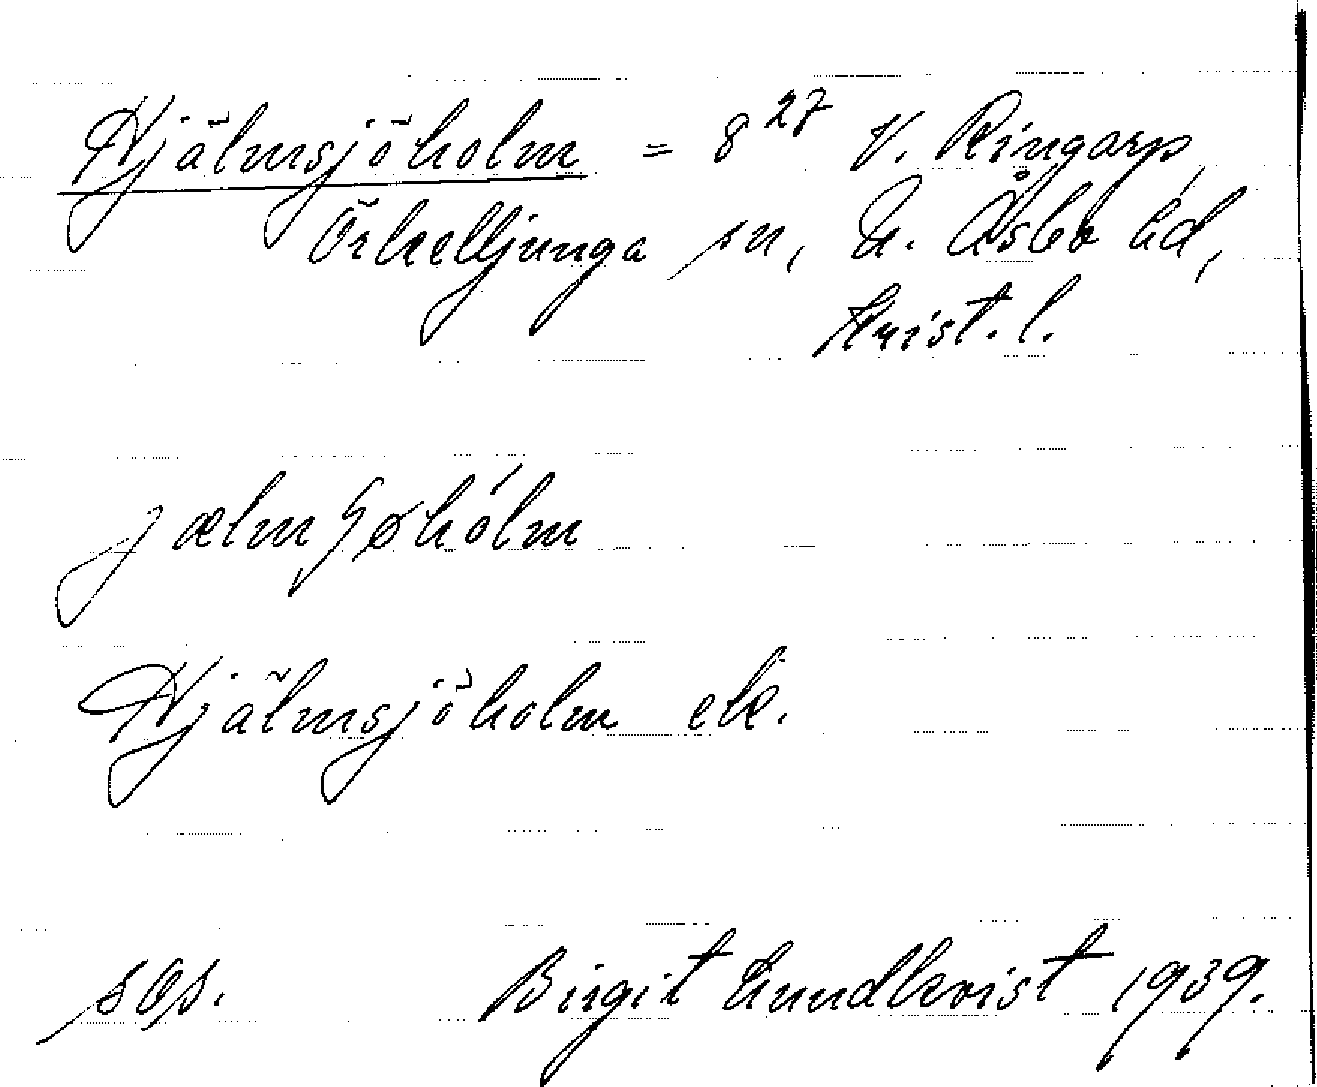 Hjälmsjöholm = 8²⁷ V. Ringarp
Örkelljunga sn, N. Åsbo hd,
Krist. l.
Hjälmsjöholm ek.
Birgit Lundkvist 1939.